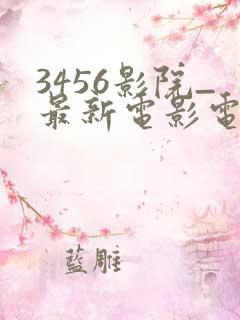 3456影院_
最新电影电
藍雕